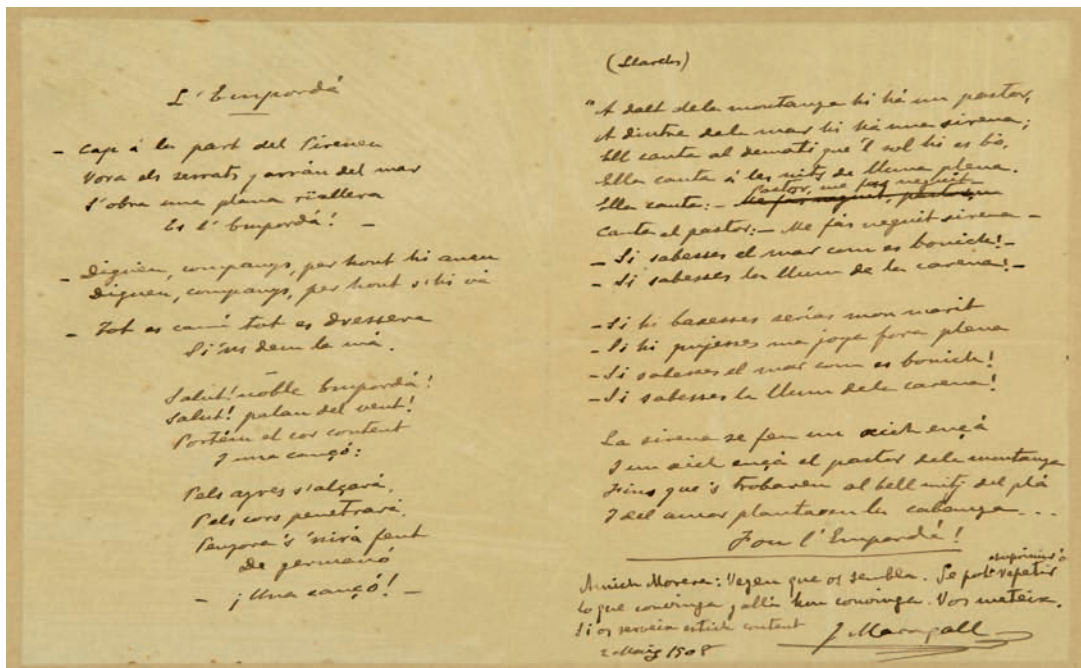 L' Empordá
- Cap á la part del Pireneu
Vora els serrats y arrán del mar
S'obra una plana riallera
Es l' Empordá! -
- Digueu, companys, per hont hi aneu
Digueu, companys, per hont s'hi vá
- Tot es camí tot es dressera
Si 'ns dem la má.
Salut! noble Empordá!
Salut! palau del vent!
Portém el cor content
I una cançó:
Pels ayres s'alçará,
Pels cors penetrará,
Penyora 's 'nirá fent
De germanó
- ¡Una cançó! -
"A dalt dela montanya hi há un pastor,
A dintre dela mar hi há una sirena;
Ell canta al dematí que 'l sol hi es bó,
Ella canta á les nits de lluna plena.
Pastor, me fas neguit -
Ella canta: - Me fas neguit, pastor,
Canta el pastor: - Me fas neguit sirena -
- Si sabesses el mar com es bonich! -
- Si sabesses la llum de la carena! -
- Si hi baxesses serías mon marit
- Si hi pujesses ma joya fora plena
- Si sabesses el mar com es bonich!
- Si sabesses la llum dela carena!
La sirena se feu un xich ençá
I un xich ençá el pastor dela montanya
Fins que 's trobaren al bell mitj del plá
I del amor plantaren la cabanya...
Fou l' Empordá!
suprimir ó
Amich Morera: Vegeu que os sembla. Se pot repetir
lo que convinga y allá hon convinga. Vos mateix.
Si os serveix estich content
J. Maragall
2 Maig 1908